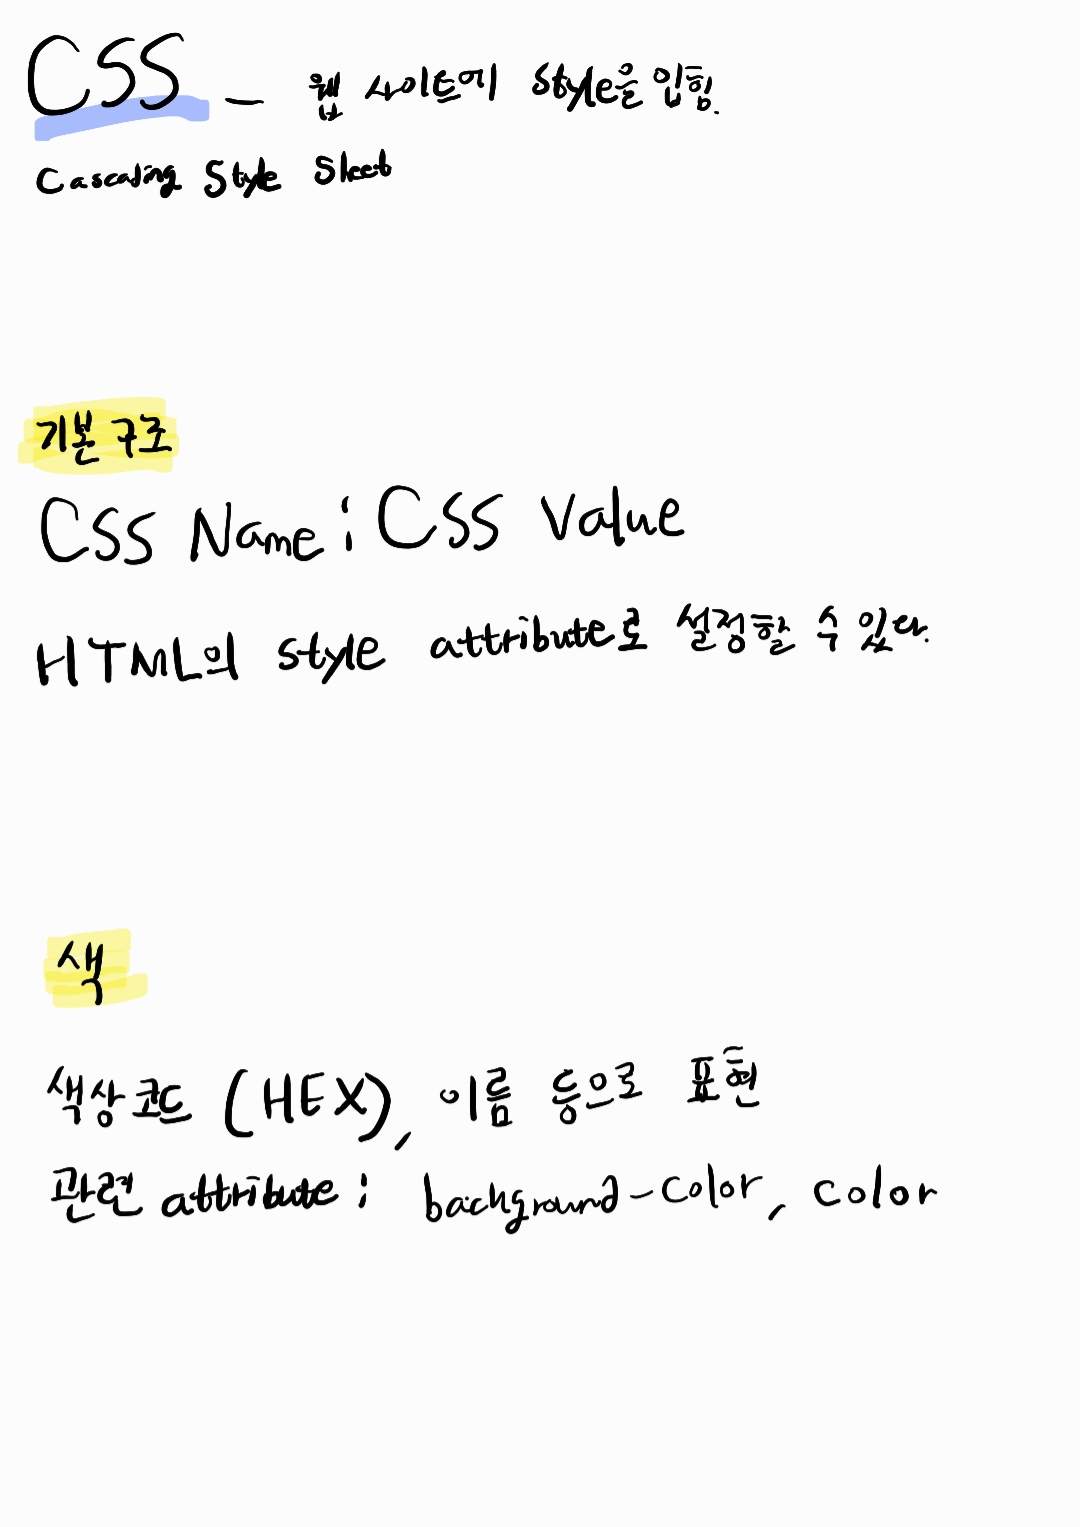 CSS - 웹 사이트에 style을 입힘.
Cascading Style Sheet
기본 구조
CSS Name : CSS Value
HTML의 style attribute로 설정할 수 있다.
색
색상코드 (HEX), 이름 등으로 표현
관련 attribute : background-color, color